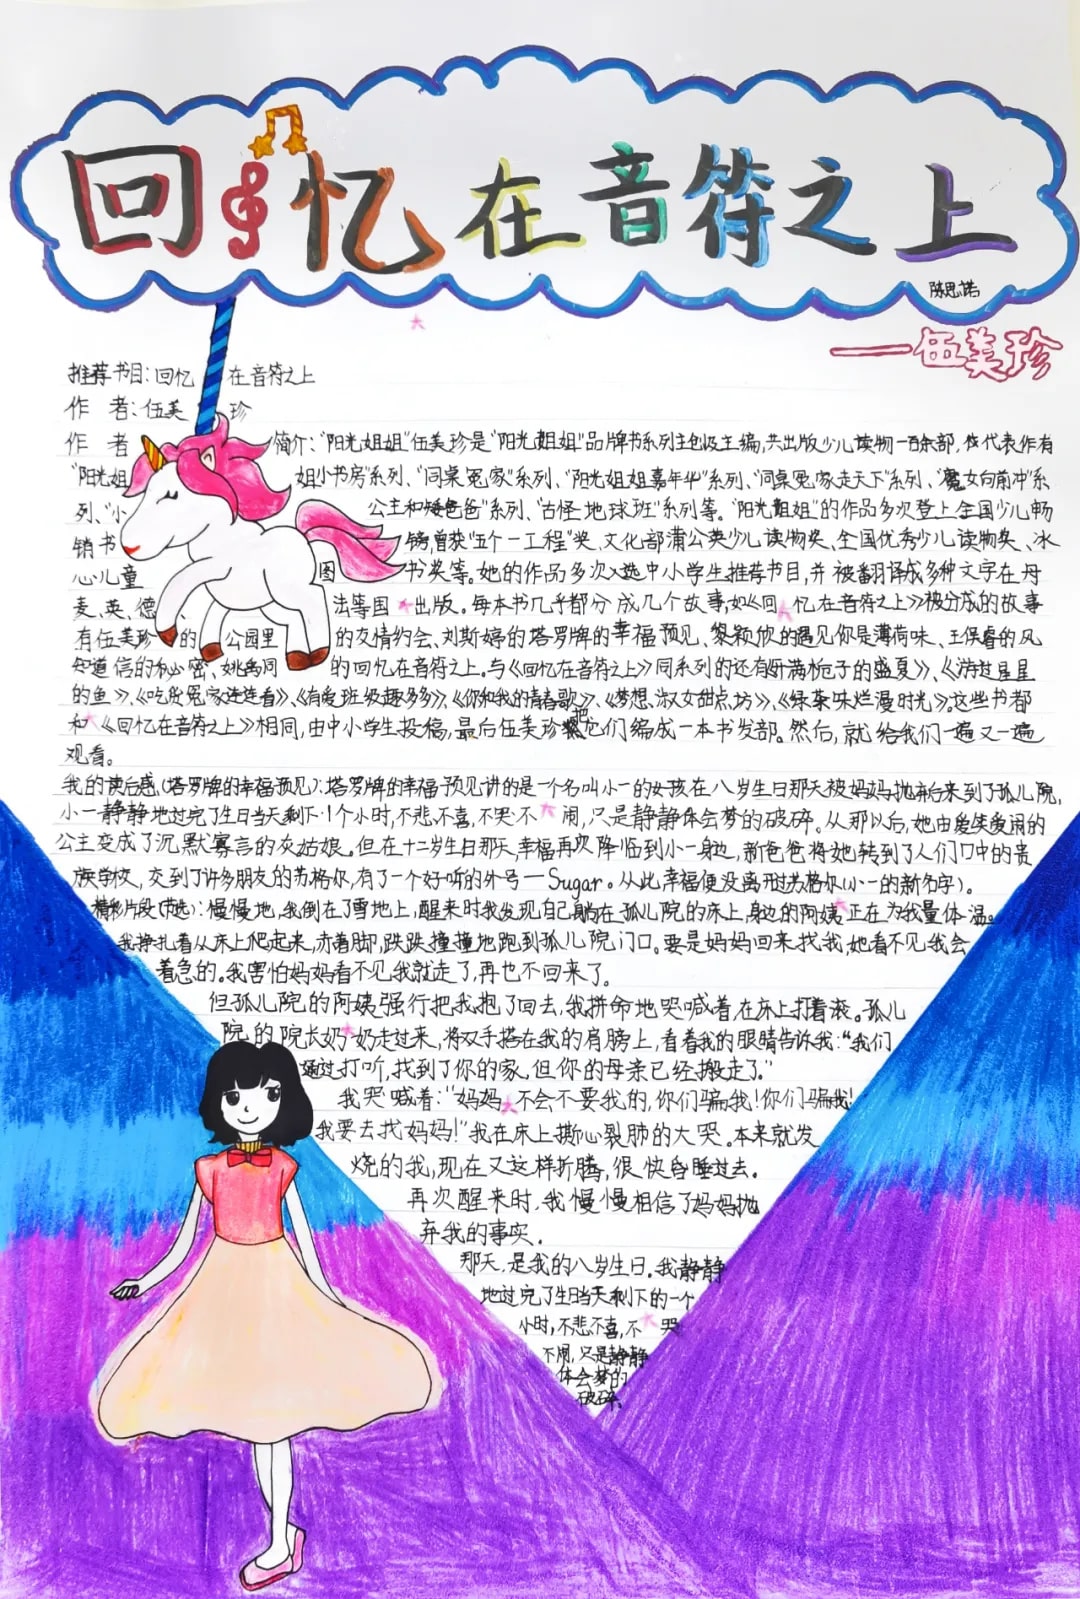 回忆在音符之上
陈思诺
——伍美珍
推荐书目:回忆在音符之上
作者:伍美珍
作者简介:“阳光姐姐”伍美珍是“阳光姐姐”品牌书系列主创及主编,共出版少儿读物一百余部,代表作有
“阳光姐姐小书房”系列、“同桌冤家”系列、“阳光姐姐嘉年华”系列、“同桌冤家走天下”系列、“魔女向前冲”系
列、“小公主和矮爸爸”系列、“古怪地球班”系列等。“阳光姐姐”的作品多次登上全国少儿畅
销书榜,曾获“五个一工程”奖、文化部蒲公英少儿读物奖、全国优秀少儿读物奖、冰
心儿童图书奖等。她的作品多次入选中小学生推荐书目,并被翻译成多种文字在
麦、英、德、法等国出版。每本书几乎都分成几个故事,如《回忆在音符之上》被分成的故事
有伍美珍的公园里的友情约会、刘斯婷的塔罗牌的幸福预见、黎颖欣的遇见你是薄荷味、王保睿的风
知道信的秘密、姚禹同的回忆在音符之上。与《回忆在音符之上》同系列的还有《开满栀子的盛夏》、《游过星星
的鱼》、《吃货冤家连连看》、《有爱班级趣多多》、《你和我的青春歌》、《梦想、淑女甜点坊》、《绿茶味烂漫时光》。这些书都
和《回忆在音符之上》相同,由中小学生投稿,最后伍美珍把它们编成一本书发部。然后,就给我们一遍又一遍
观看。
我的读后感(塔罗牌的幸福预见):塔罗牌的幸福预见讲的是一个名叫小一的女孩在八岁生日那天被妈妈抛弃后来到了孤儿院,
小一静静地过完了生日当天剩下1个小时,不悲不喜,不哭不闹,只是静静体会梦的破碎。从那以后,她由爱笑爱闹的
公主变成了沉默寡言的灰姑娘。但在十二岁生日那天,幸福再次降临到小一身边,新爸爸将她转到了人们口中的贵
族学校,交到了许多朋友的苏格尔,有了一个好听的外号—Sugar。从此幸福便没离开过苏格尔(小一的新名字)。
精彩片段(节选):慢慢地,我倒在了雪地上,醒来时我发现自己躺在孤儿院的床上,身边的阿姨正在为我量体温。
我挣扎着从床上爬起来,赤着脚,跌跌撞撞地跑到孤儿院门口。要是妈妈回来找我,她看不见我会
着急的。我害怕妈妈看不见我就走了,再也不回来了。
但孤儿院的阿姨强行把我抱了回去,我拼命地哭喊着,在床上打着滚。孤儿
院的院长奶奶走过来,将双手搭在我的肩膀上,看着我的眼睛告诉我:“我们
通过打听,找到了你的家,但你的母亲已经搬走了。”
我哭喊着:“妈妈不会不要我的,你们骗我!你们骗我!
我要去找妈妈!”我在床上撕心裂肺的大哭。本来就发
烧的我,现在又这样折腾,很快昏睡过去。
再次醒来时,我慢慢相信了妈妈抛
弃我的事实.
那天,是我的八岁生日。我静静
地过完了生日当天剩下的一个
小时,不悲不喜,不哭
不闹,只是静静
体会梦的
破碎。